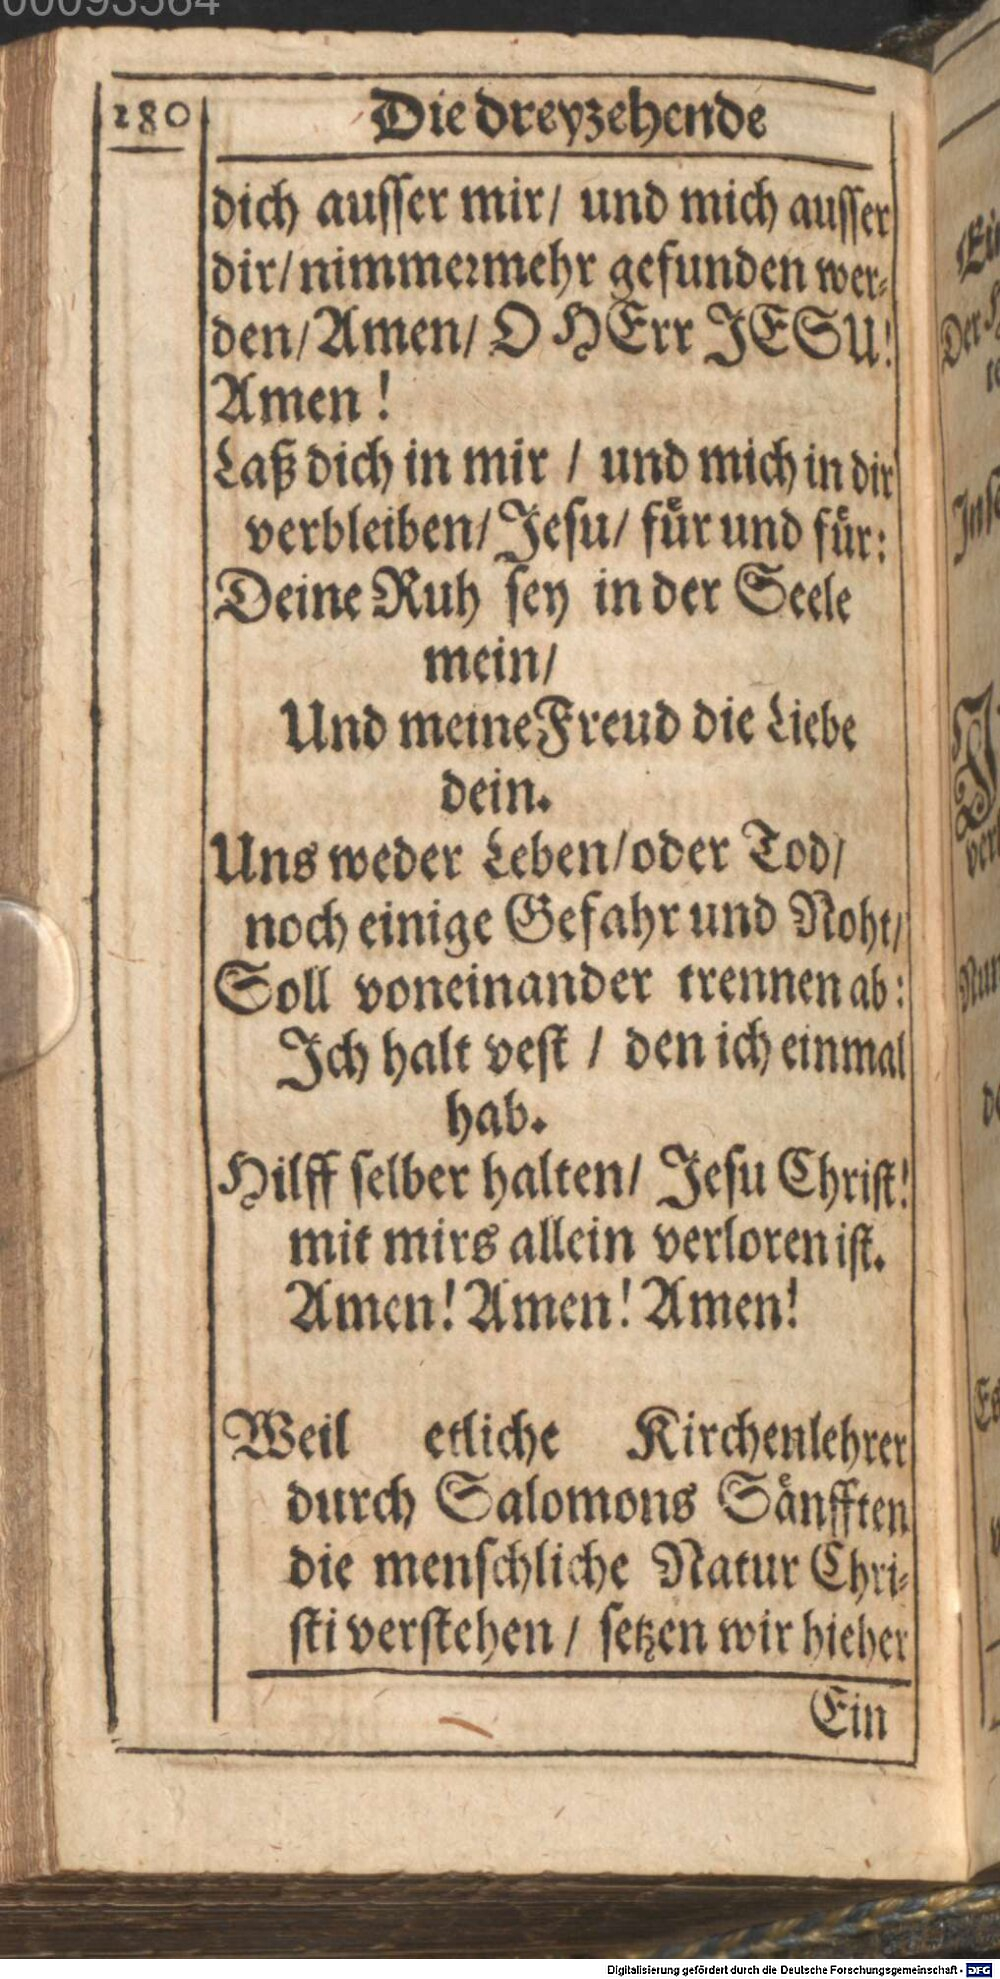 180
Die dreyzehende
dich auſſer mir/ und mich auſſer
dir/ nimmermehr gefunden wer-
den/ Amen/ O HErr JESU!
Amen!
Laß dich in mir / und mich in dir
verbleiben/ Jeſu/ fuͤr und fuͤr:
Deine Ruh ſey in der Seele
mein/
Und meine Freud die Liebe
dein.
Uns weder Leben/ oder Tod/
noch einige Gefahr und Noht/
Soll voneinander trennen ab:
Ich halt veſt / den ich einmal
hab.
Hilff ſelber halten/ Jeſu Chriſt!
mit mirs allein verloren iſt.
Amen! Amen! Amen!
Weil etliche Kirchenlehrer
durch Salomons Saͤnfften
die menſchliche Natur Chri-
ſti verſtehen / ſetzen wir hieher
Ein
Digitalisierung gefördert durch die Deutsche Forschungsgemeinschaft - DFG